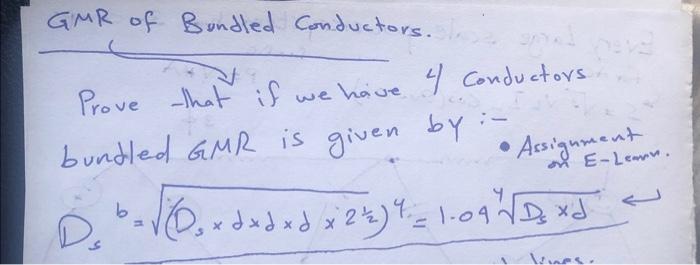 GMR of Bundled Conductors.
Prove that if we have 4 Conductors
bundled GMR is given by :-
• Assignment
on E-Learn.
Dₛᵇ = √(Dₛ × d × d × d × 2^½)⁴ = 1.09 ⁴√Dₛ × d
lines.